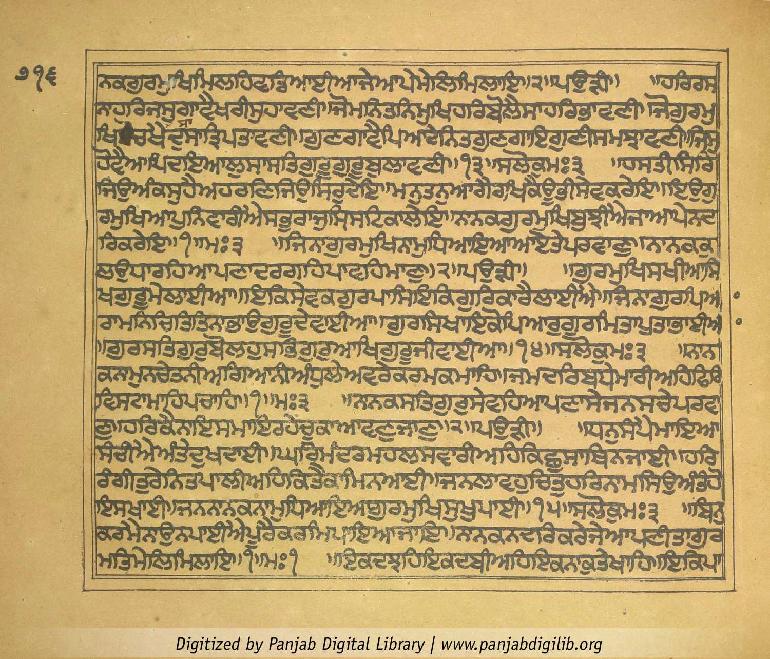 ੭੧੬
ਨਕਗੁਰਮੁਖਿਮਿਲਹਿਵਡਿਆਈਆਜੇਆਪੇਮੇਲਿਮਿਲਾਇ॥੨॥ਪਉੜੀ॥ ॥ਹਰਿਰਸ
ਨਹਰਿਜਸੁਗਾਵੈਖਰੀਸੁਹਾਵਣੀ॥ਜੋਮਨਿਤਨਿਮੁਖਿਹਰਿਬੋਲੈਸਾਹਰਿਭਾਵਣੀ॥ਜੋਗੁਰਮੁ
ਖਿਚਖੈਦਸਾਤ੍ਰਿਪਤਾਵਣੀ॥ਗੁਣਗਾਵੈਪਿਆਰੇਨਿਤਗੁਣਗਾਇਗੁਣੀਸਮਝਾਵਣੀ॥ਜਿਸੁ
ਹੋਵੈਆਪਿਦਇਆਲੁਸਾਸਤਿਗੁਰੂਗੁਰੂਬੁਲਾਵਣੀ॥੧੩॥ਸਲੋਕੁਮਃ੩ ॥ਹਸਤੀਸਿਰਿ
ਜਿਉਅੰਕਸੁਹੈਅਹਰਣਿਜਿਉਸਿਰੁਦੇਇ॥ਮਨੁਤਨੁਆਗੈਰਾਖਿਕੈਊਭੀਸੇਵਕਰੇਇ॥ਇਉਗੁ
ਰਮੁਖਿਆਪੁਨਿਵਾਰੀਐਸਭੁਰਾਜੁਸ੍ਰਿਸਟਿਕਾਲੇਇ॥ਨਾਨਕਗੁਰਮੁਖਿਬੁਝੀਐਜਾਆਪੇਨਦ
ਰਿਕਰੇਇ॥੧॥ਮਃ੩ ॥ਜਿਨਗੁਰਮੁਖਿਨਾਮੁਧਿਆਇਆਆਏਤੇਪਰਵਾਣੁ॥ਨਾਨਕਕੁ
ਲਉਧਾਰਹਿਆਪਣਾਦਰਗਹਿਪਾਵਹਿਮਾਣੁ॥੨॥ਪਉੜੀ॥ ॥ਗੁਰਮੁਖਿਸਖੀਆਸਿ
ਖਗੁਰੂਮੇਲਾਈਆ॥ਇਕਿਸੇਵਕਗੁਰਪਾਸਿਇਕਿਗੁਰਿਕਾਰੈਲਾਈਆ॥ਜਿਨਾਗੁਰੁਪਿਆ
ਰਾਮਨਿਚਿਤਿਤਿਨਾਭਾਉਗੁਰੂਦੇਵਾਈਆ॥ਗੁਰਸਿਖਾਇਕੋਪਿਆਰੁਗੁਰਮਿਤਾਪੁਤਾਭਾਈਆ
॥ਗੁਰੁਸਤਿਗੁਰੁਬੋਲਹੁਸਭਿਗੁਰੁਆਖਿਗੁਰੂਜੀਵਾਈਆ॥੧੪॥ਸਲੋਕੁਮਃ੩ ॥ਨਾਨ
ਕਨਾਮੁਨਚੇਤਨੀਅਗਿਆਨੀਅੰਧੁਲੇਅਵਰੇਕਰਮਕਮਾਹਿ॥ਜਮਦਰਿਬਧੇਮਾਰੀਅਹਿਫਿਰਿ
ਵਿਸਟਾਮਾਹਿਪਚਾਹਿ॥੧॥ਮਃ੩ ॥ਨਾਨਕਸਤਿਗੁਰੁਸੇਵਹਿਆਪਣਾਸੇਜਨਸਚੇਪਰਵਾ
ਣੁ॥ਹਰਿਕੈਨਾਇਸਮਾਇਰਹੇਚੂਕਾਆਵਣੁਜਾਣੁ॥੨॥ਪਉੜੀ॥ ॥ਧਨੁਸੰਪੈਮਾਇਆ
ਸੰਚੀਐਅੰਤੇਦੁਖਦਾਈ॥ਘਰਮੰਦਰਮਹਲਸਵਾਰੀਅਹਿਕਿਛੁਸਾਥਿਨਜਾਈ॥ਹਰਿ
ਰੰਗੀਤੁਰੇਨਿਤਪਾਲੀਅਹਿਕਿਤੈਕਾਮਿਨਆਈ॥ਜਨਲਾਵਹੁਚਿਤੁਹਰਿਨਾਮਸਿਉਅੰਤਿਹੋ
ਇਸਖਾਈ॥ਜਨਨਾਨਕਨਾਮੁਧਿਆਇਆਗੁਰਮੁਖਿਸੁਖੁਪਾਈ॥੧੫॥ਸਲੋਕੁਮਃ੩ ॥ਬਿਨੁ
ਕਰਮੈਨਾਉਨਪਾਈਐਪੂਰੈਕਰਮਿਪਾਇਆਜਾਇ॥ਨਾਨਕਨਦਰਿਕਰੇਜੇਆਪਣੀਤਾਗੁਰ
ਮਤਿਮੇਲਿਮਿਲਾਇ॥੧॥ਮਃ੧ ॥ਇਕਦਝਹਿਇਕਦਬੀਅਹਿਇਕਨਾਕੁਤੇਖਾਹਿ॥ਇਕਿਪਾ
Digitized by Panjab Digital Library | www.panjabdigilib.org